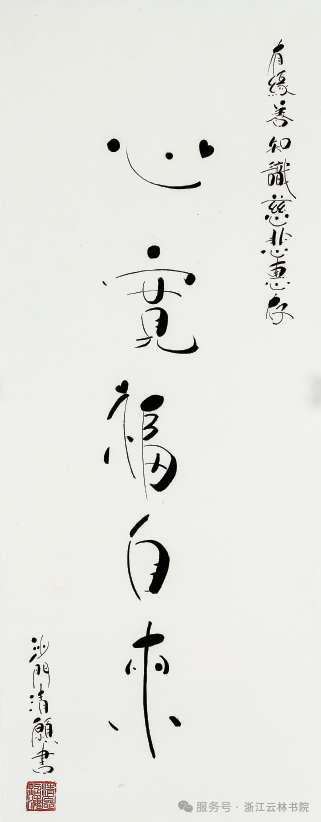 有緣善知識慈悲惠存
心寬福自來
沙門清願書
服务号 · 浙江云林书院